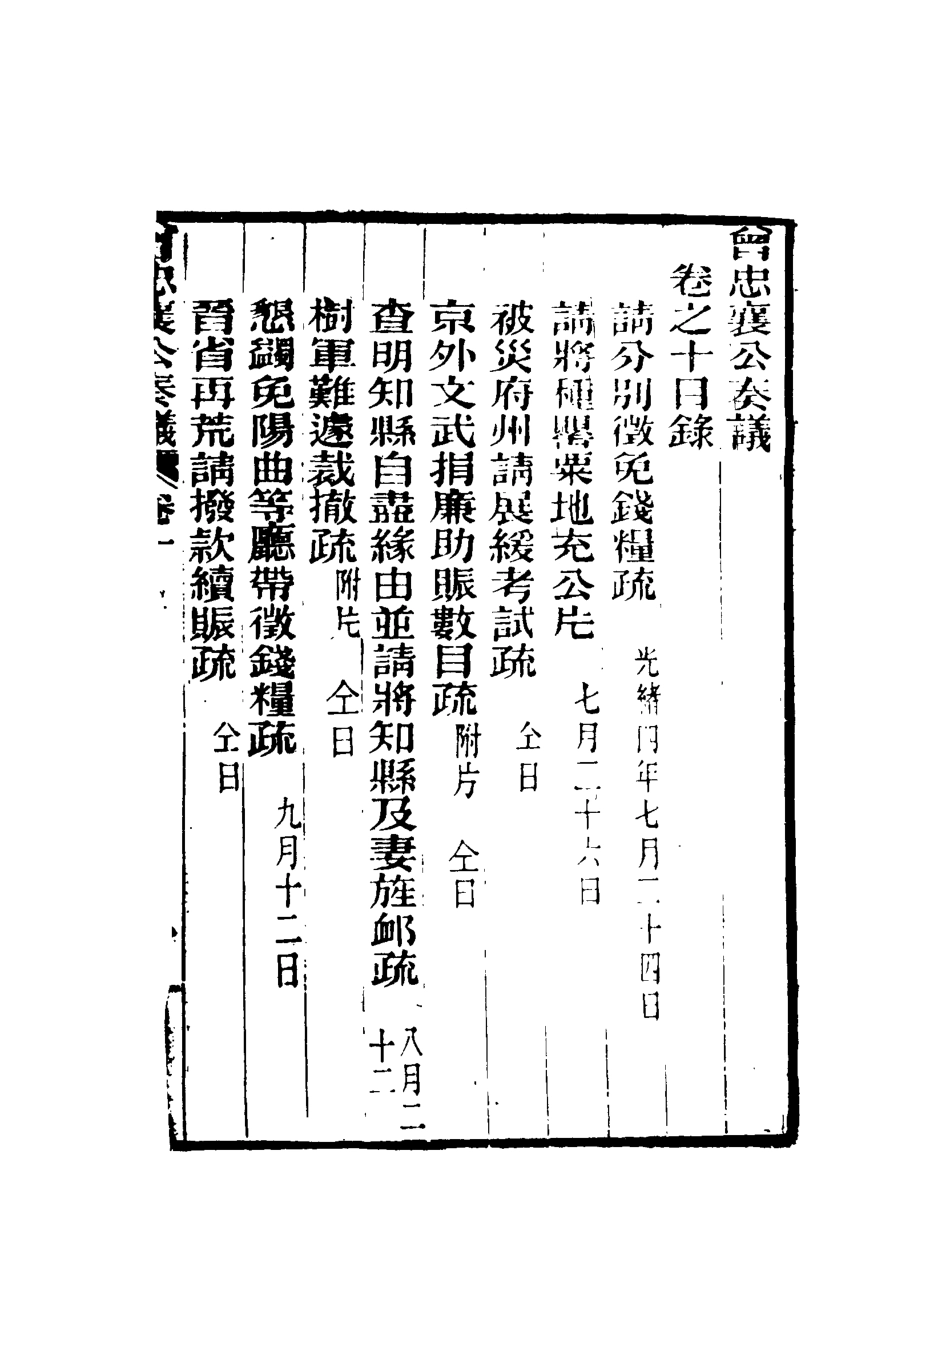 曾忠襄公奏議
卷之十目錄
請分別徵免錢糧疏 光緒四年七月二十四日
請將種罌粟地充公片 七月二十六日
被災府州請展緩考試疏 仝日
京外文武捐廉助賑數目疏 附片 仝日
查明知縣自盡緣由並請將知縣及妻旌卹疏 八月二十二
樹軍難遽裁撤疏 附片 仝日
懇蠲免陽曲等廳帶徵錢糧疏 九月十二日
晉省再荒請撥款續賑疏 仝日
曾忠襄公奏議 卷十